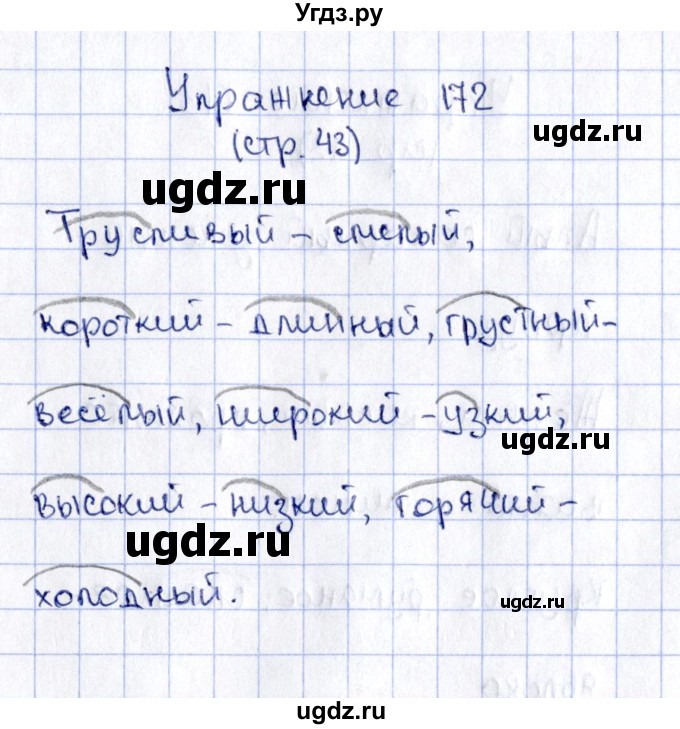 Угдз.ру
Упражнение 172
ugdz.ru
(стр. 43)
ugdz.ru
Трусливый - смелый,
короткий - длинный, грустный-
ugdz.ru
весёлый, широкий - узкий,
ugdz.ru
высокий - низкий, горячий-
ugdz.ru
холодный.
ugdz.ru
ugdz.ru